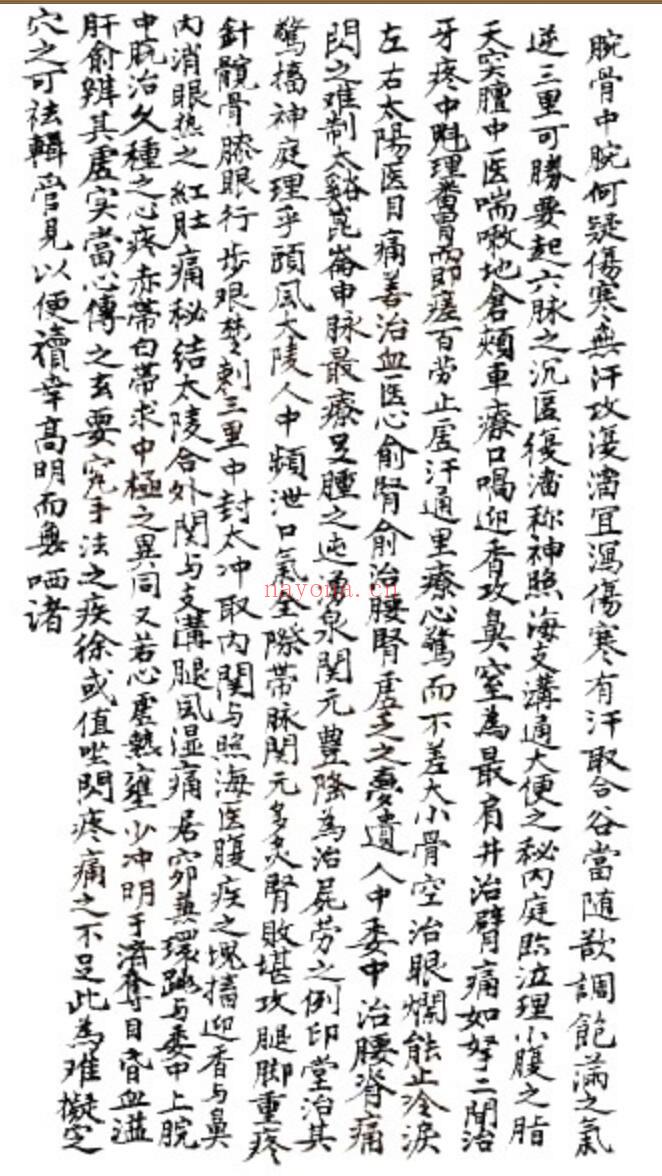 腕骨中脘何疑傷寒無汗攻復溜宜瀉傷寒有汗取合谷當随歆調飽满之氣
逆三里可勝要起六脉之沉匿復溜称神照海支溝通大便之秘内庭臨泣理小腹之脂
天突膻中医喘嗽地倉頰車療口喎迎香攻鼻窒為最肩井治臂痛如拏二間治
牙疼中魁理番胃而即瘥百劳止虚汗通里療心驚而不差大小骨空治眼爛能止冷淚
左右太陽医目痛善治血医心俞腎俞治腰腎虚乏之夢遺人中委中治腰脊痛
閃之难制太谿崑崙申脉最療足腫之迍湧泉関元豊隆為治屍劳之例印堂治其
驚搐神庭理乎頭風大陵人中頻泄口氣全際帯脉関元多灸腎敗堪攻腿脚重疼
針髋骨膝眼行步艰楚刺三里中封太冲取内関与照海医腹疾之塊搐迎香与鼻
内消眼热之紅肚痛秘结太陵合外関与支溝腿風湿痛居窌兼環跳与委中上脘
中脘治久種之心疼赤帯白帯求中極之異同又若心虚熱壅少冲明于済奪目昏血溢
肝俞辨其虚实當心傳之玄要究手法之疾徐或值坐閃疼痛之不足此為难擬定
穴之可祛輯管見以便讀幸高明而無哂诸
nayona.cn